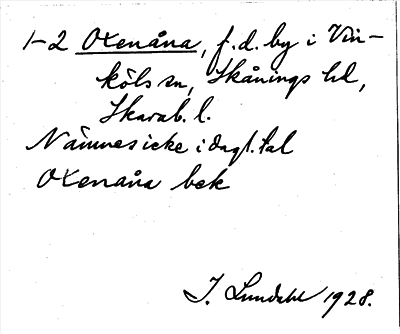 1-2 Oxenåna, f.d. by i Vin-
köls sn, Skånings hd,
Skarab. l.
Nämnes icke i dagl. tal
Oxenåna bek
I. Lundahl 1928.